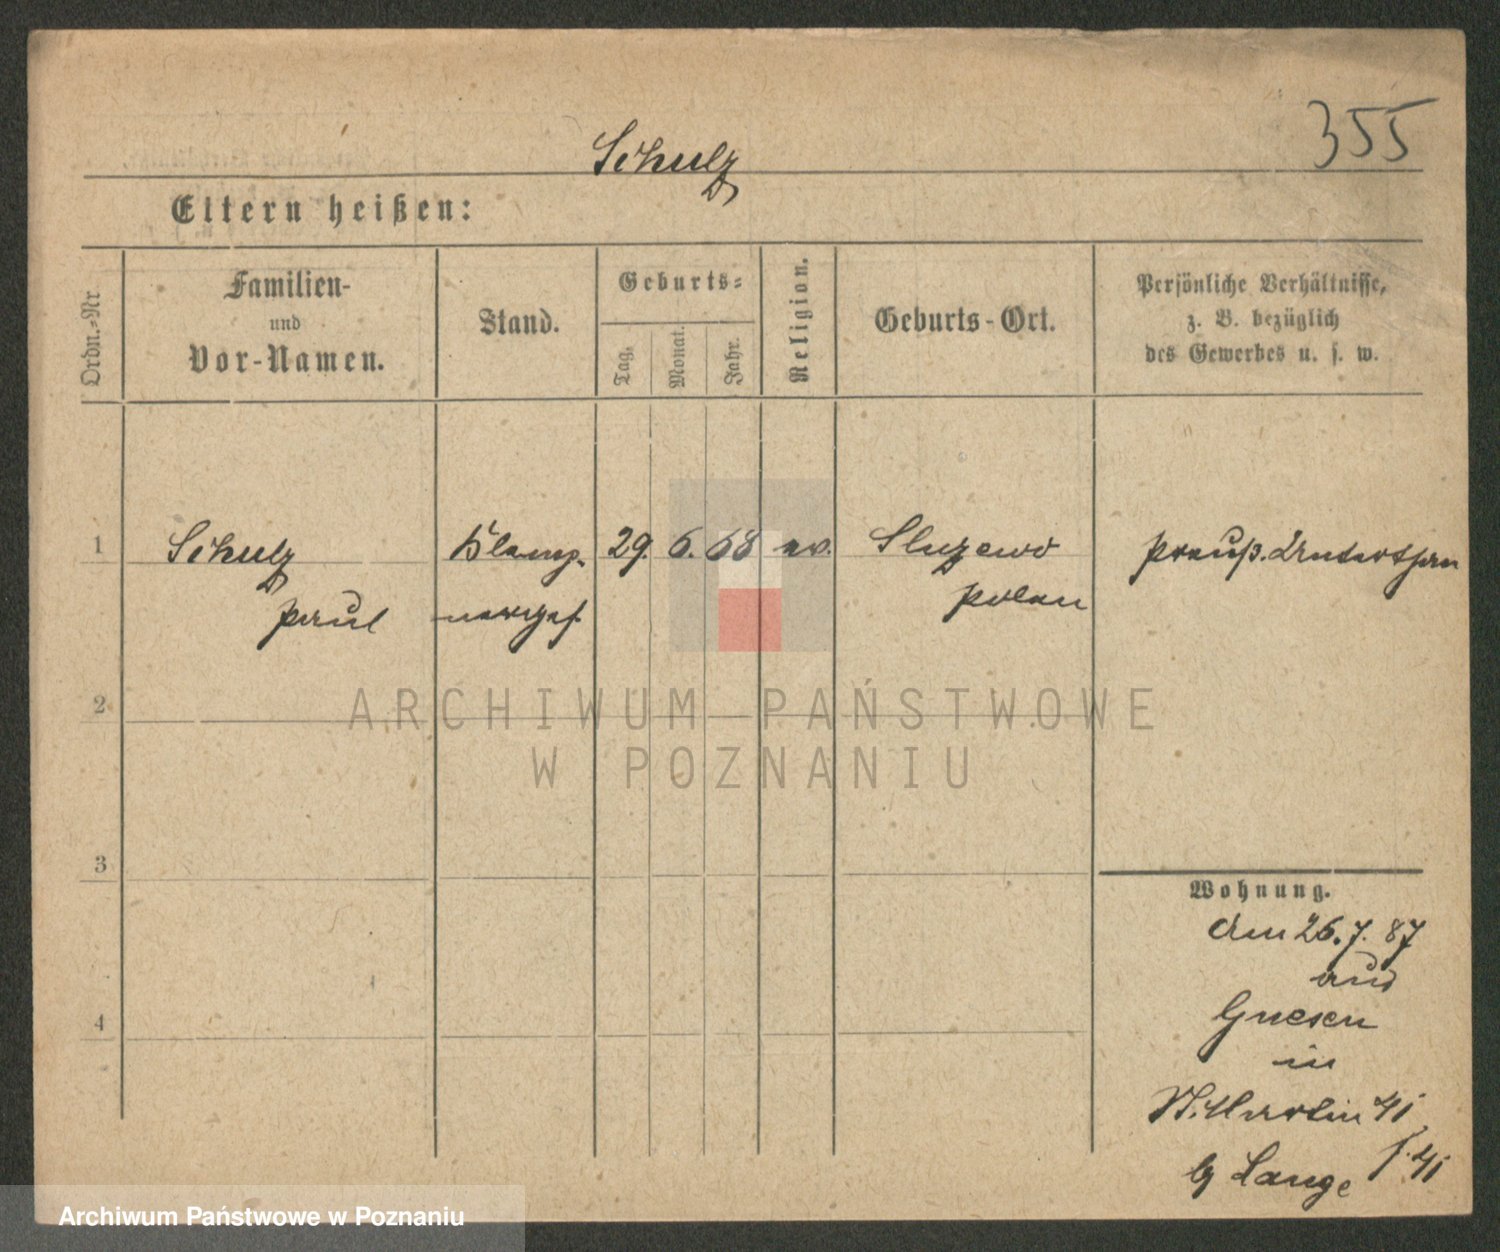 355
Schulz
Eltern heißen:
Ordn.-Nr
Familien-
und
Vor-Namen.
Stand.
Geburts-
Tag.
Monat.
Jahr.
Religion.
Geburts-Ort.
Persönliche Verhältnisse,
z. B. bezüglich
des Gewerbes u. s. w.
1 Schulz Klemp- 29. 6. 68 ev. Sluzewo Preuß. Unterthan
Paul nerges. Polen
2
ARCHIWUM PAŃSTWOWE
W POZNANIU
3
Wohnung.
am 26.7.87
aus
4
Gnesen
in
St. Martin 41
b/ Lange
Archiwum Państwowe w Poznaniu